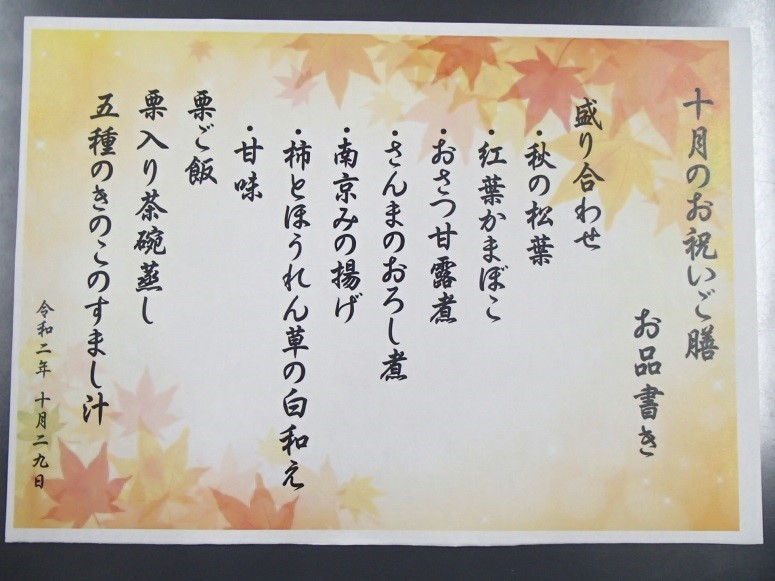 十月のお祝いご膳
お品書き
盛り合わせ
・秋の松葉
・紅葉かまぼこ
・おさつ甘露煮
・さんまのおろし煮
・南京みの揚げ
・柿とほうれん草の白和え
・甘味
栗ご飯
栗入り茶碗蒸し
五種のきのこのすまし汁
令和二年 十月二九日